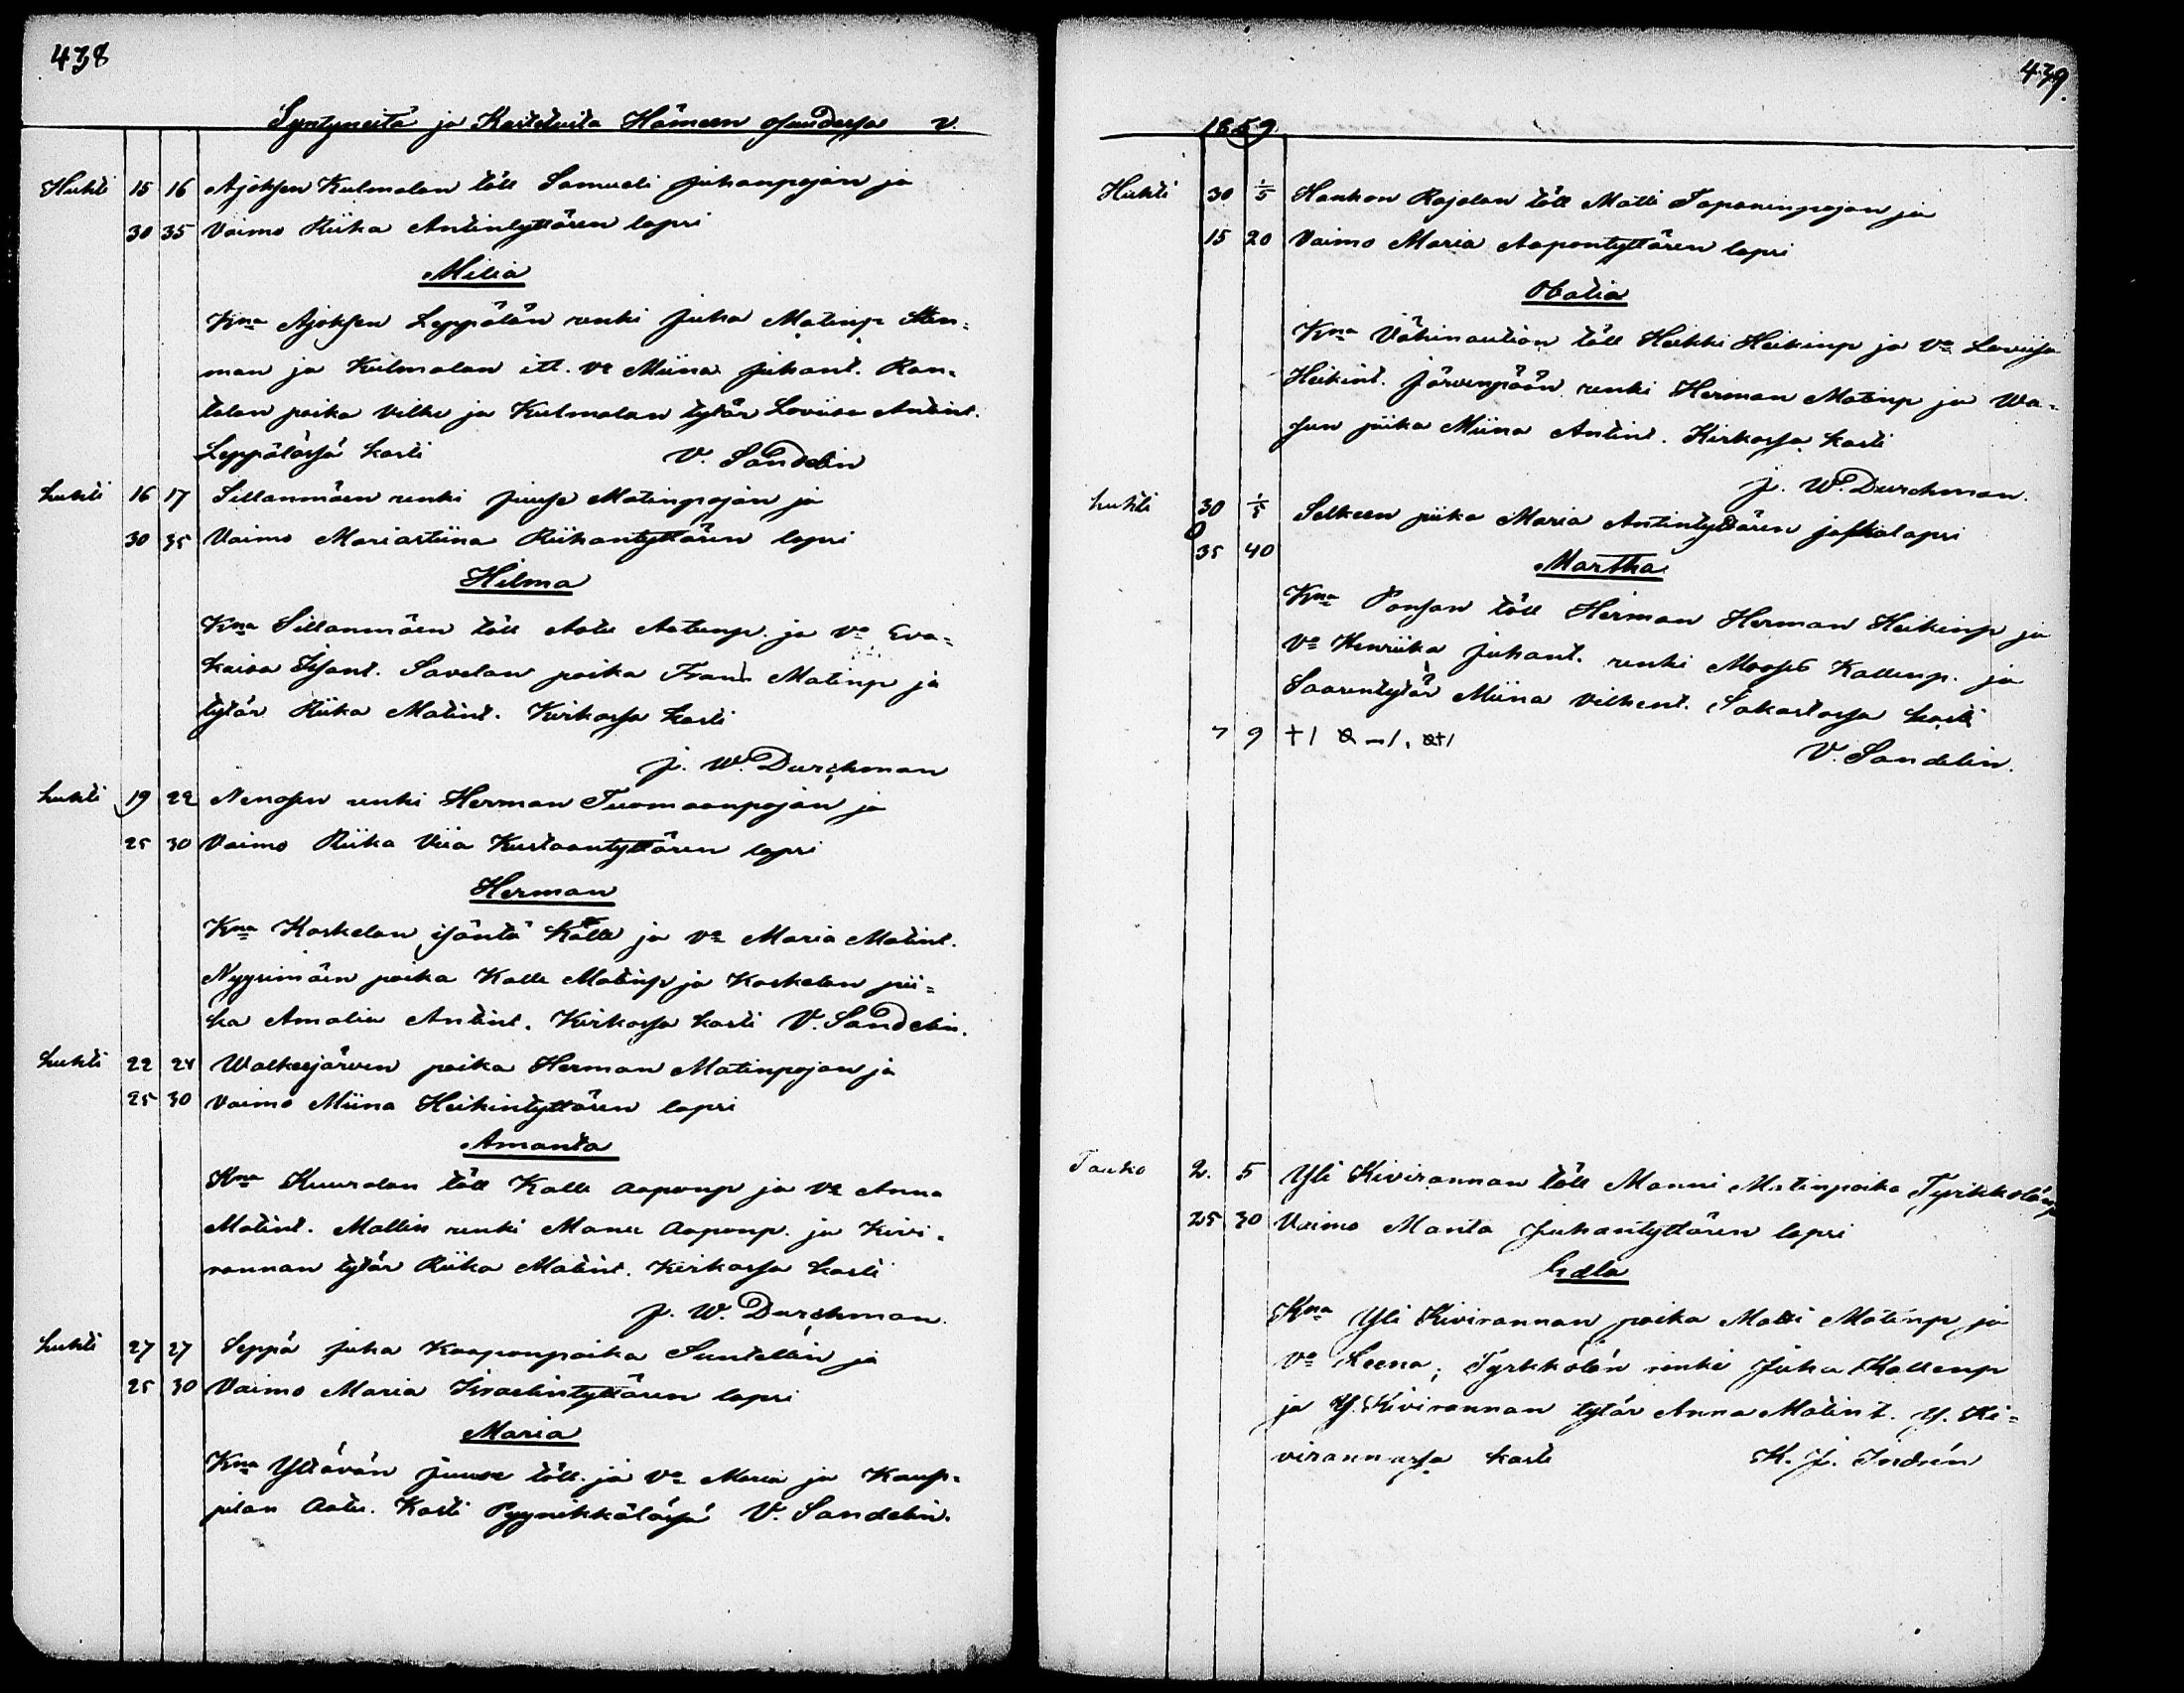 438
Syntyneitä ja Kastetuita Hämeen osuudessa v.
Huhti 15 16 Ajoksen Kulmalan töll Samueli Juhanpojan ja
30 35 Vaimo Riika Antintyttären lapsi
Milia
Kna Ajoksen Leppälän renki Juha Matinp Sten=
man ja Kulmalan itl. va Miina Juhant. Ran=
talan poika Vilhe ja Kulmalan tytär Loviisa Antint.
Leppälässä kasti V. Sandelin
huhti 16 17 Sillanmäen renki Juuse Matinpojan ja
30 35 Vaimo Mariastiina Riihontyttären lapsi
Hilma
Kna Sillanmäen töll Aatu Aatunp. ja va Eva=
kaisa Isant. Savelan poika Frans Matinp ja
tytär Riika Matint. Kirkossa kasti
J. W. Durchman
huhti 19 22 Nenosen renki Herman Tuomaanpojan ja
25 30 Vaimo Riika Viia Kustaantyttären lapsi
Herman
Kna Koskelan isäntä Kalle ja va Maria Matint.
Nyyrimäen poika Kalle Matinp ja Koskelan pii=
ka Amalia Antint. Kirkossa kasti V. Sandelin.
huhti 22 24 Walkeejärven poika Herman Matinpojan ja
25 30 Vaimo Miina Heikintyttären lapsi
Amanta
Kna Kuuralan töll Kalle Aaponp ja va Anna
Matint. Mallin renki Manu Aaponp. ja Kivi=
rannan tytär Riika Matint. Kirkossa kasti
J. W. Durchman.
huhti 27 27 Seppä Juha Kaaponpoika Suntellin ja
25 30 Vaimo Maria Israelintyttären lapsi
Maria
Kna Yltävän Juuse töll. ja va Maria ja Kaup=
pilan Aatu. Kasti Pyynikkälässä V. Sandelin.
439.
1859
Huhti 30 1/5 Hankon Rajalan töll Matti Tapaninpojan ja
15 20 Vaimo Maria Aapontyttären lapsi
Otalia
Kna Vähinaution töll Heikki Heikinp ja va Loviisa
Heikint. Järvenpään renki Herman Matinp ja Wa=
sun piika Miina Antint. Kirkossa kasti
J. W. Durchman.
huhti 30 1/5 Selkeen piika Maria Antintyttären
0
35 40
Martha
Kna Ponsan töll Herman Herman Heikinp ja
va Henriika Juhant. renki Mooses Kallenp. ja
Saarentytär Miina Vilhent. Sakastossa kasti
7 9 V. Sandelin.
Touko 2. 5 Yli Kivirannan töll Manni Matinpoika Tyrkkölän ja
25 30 Vaimo Manta Juhantyttären lapsi
Edla
Kna Yli Kivirannan poika Matti Matinp ja
va Leena; Tyrkkölän renki Juha Kallenp
ja Y. Kivirannan tytär Anna Matint. Y. Ki=
virannassa kasti K. J. Indrén